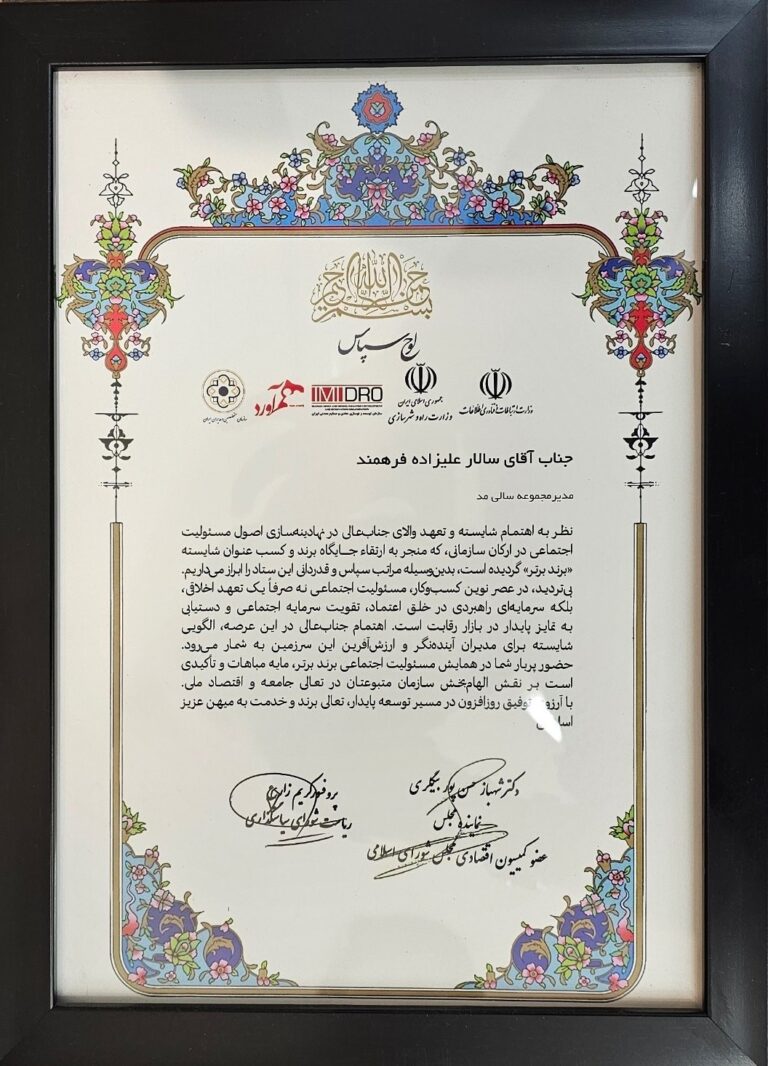 بسم الله الرحمن الرحیم
لوح سپاس
وزارت ارتباطات و فناوری اطلاعات
جمهوری اسلامی ایران
وزارت راه و شهرسازی
IMIDRO
سازمان توسعه و نوسازی معادن و صنایع معدنی ایران
هم‌آورد
جناب آقای سالار علیزاده فرهمند
مدیرمجموعه سالی مد
نظر به اهتمام شایسته و تعهد والای جناب‌عالی در نهادینه‌سازی اصول مسئولیت
اجتماعی در ارکان سازمانی، که منجر به ارتقاء جایگاه برند و کسب عنوان شایسته
«برند برتر» گردیده است، بدین‌وسیله مراتب سپاس و قدردانی این ستاد را ابراز می‌داریم.
بی‌تردید، در عصر نوین کسب‌وکار، مسئولیت اجتماعی نه صرفاً یک تعهد اخلاقی،
بلکه سرمایه‌ای راهبردی در خلق اعتماد، تقویت سرمایه اجتماعی و دستیابی
به تمایز پایدار در بازار رقابت است. اهتمام جناب‌عالی در این عرصه، الگویی
شایسته برای مدیران آینده‌نگر و ارزش‌آفرین این سرزمین به شمار می‌رود.
حضور پربار شما در همایش مسئولیت اجتماعی برند برتر، مایه مباهات و تأکیدی
است بر نقش الهام‌بخش سازمان متبوعتان در تعالی جامعه و اقتصاد ملی.
با آرزوی توفیق روزافزون در مسیر توسعه پایدار، تعالی برند و خدمت به میهن عزیز
دکتر شهباز حسن پور بیگلری
نماینده مجلس
عضو کمیسیون اقتصادی مجلس شورای اسلامی
پروفسور کریم زارع
ریاست شورای سیاستگذاری